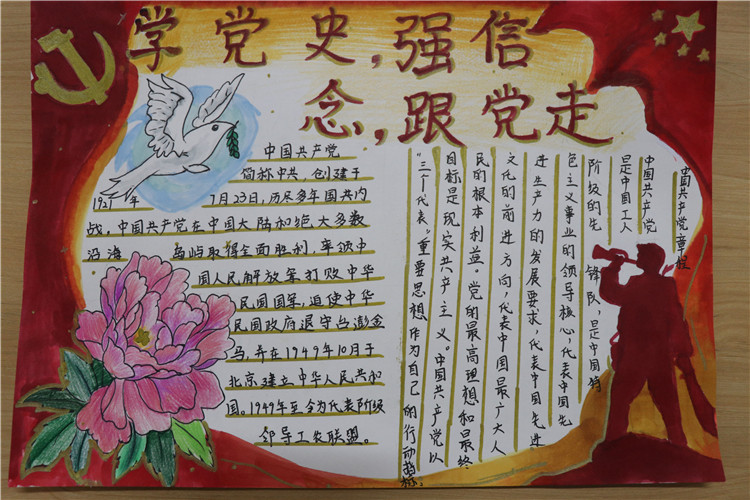 学党史,强信
念,跟党走
中国共产党
简称中共,创建于
1921年 7月23日,历尽多年国共内
战,中国共产党在中国大陆和绝大多数
沿海 岛屿取得全面胜利,率领中
国人民解放军打败中华
民国国军,迫使中华
民国政府退守台澎金
马,并在1949年10月于
北京建立中华人民共和
国。1949年至今为代表阶级
领导工农联盟。
中国共产党章程
中国共产党
是中国工人
阶级的先 锋队,是中国特
色主义事业的领导核心,代表中国先
进生产力的发展要求,代表中国先进
文化的前进方向,代表中国最广大人
民的根本利益。党的最高理想和最终
目标是现实共产主义。中国共产党以
"三个代表"重要思想作为自己的行动指标。